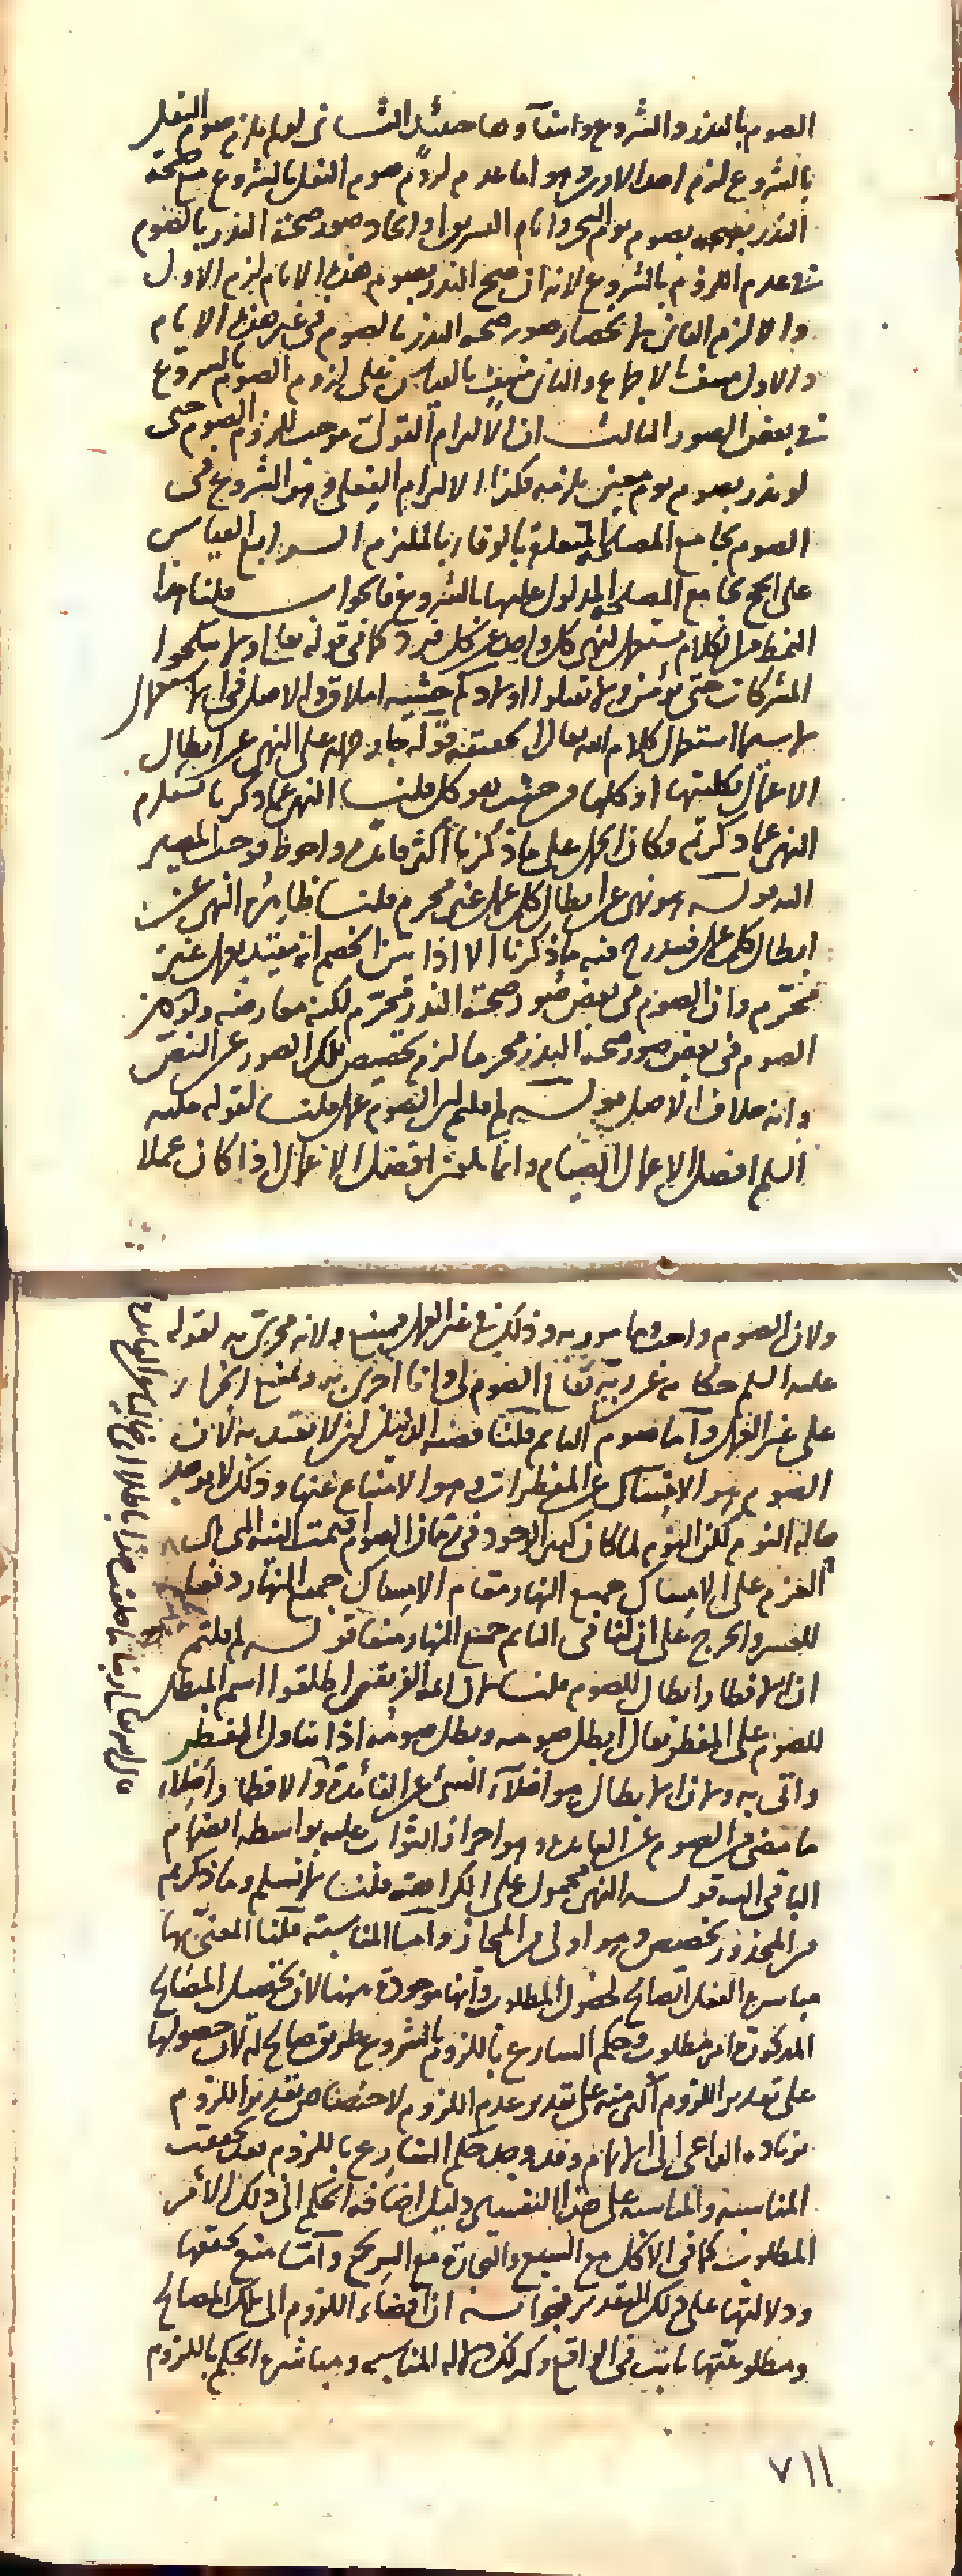 الصوم بالنذر والشروع وانتفآوهما حينئذ الثانى لو لم يلزم صوم النفل
بالشروع لزم احد الامرين وهو اما عدم لزوم صوم النفل بالشروع مع صحة
النذر بصوم يوم النحر وايام التشريق او اتحاد صور صحة النذر بالصوم
فى عدم اللزوم بالشروع لانه ان صح النذر بصوم هذه الايام لزم الاول
والا لزم الثانى لانحصار صور صحه النذر بالصوم فى غير هذه الايام
والاول منتف بالاجماع والثانى منتف بالقياس على لزوم الصوم بالشروع
فى بعض الصور الثالث ان الالتزام القولى موجب للزوم الصوم حتى
لو نذر بصوم يوم معين يلزمه فكذا الالتزام الفعلى وهو الشروع فى
الصوم بجامع المصلحة المتعلقة بالوفاء بالملتزم الرابع القياس
على الحج بجامع المصلحة المدلول عليها بالشروع فالجواب قلنا هذا
النمط من الكلام يستعمل لنهى كل واحد عن كل فرد كما فى قوله تعالى ولا تنكحوا
المشركات حتى يؤمن ولا تقتلوا اولادكم خشية املاق والاصل فى الاستعمال
لا سيما استعمال كلام الله تعالى الحقيقة قوله جاز حمله على النهى عن ابطال
الاعمال بكليتها او كلها من حيث هو كل قلنا النهى عما ذكرنا يستلزم
النهى عما ذكرتم فكان الحمل على ما ذكرنا أكثر فائدة واحوط فوجب المصير
اليه قوله هو نهى عن ابطال كل عمل غير محرم قلنا ظاهره النهى عن
ابطال كل عمل فيندرج فيه ما ذكرنا الا اذا بين الخصم انه مقيد بعمل غير
محرم وان الصوم فى بعض صور صحة النذر محرم لكنه معارضه ولو كان
الصوم فى بعض صور صحه النذر محرما لزم تخصيص تلك الصور عن النص
وانه خلاف الاصل قوله لم قلتم ان الصوم عمل قلنا لقوله عليه
السلم افضل الاعمال الصيام وانما يكون افضل الاعمال اذا كان عملا
ولان الصوم واحد ومامور به وذلك فى غير العمل ممتنع ولانه مجزى به لقوله
عليه السلم حكاية عن ربه تعالى الصوم لى وانا اجزى به ويمتنع الجزاء
على غير العمل وأما صوم النائم قلنا قضيه الدليل ان لا يعتد به لان
الصوم هو الامساك عن المفطرات وهو الامتناع عنها وذلك لا يوجد
حالة النوم لكن النوم لما كان كثير الوجود فى زمان الصوم اقيمت النية التى هى
العزم على الامساك جميع النهار مقام الامساك جميع النهار دفعا
للعسر والحرج على ان لنا فى النائم جميع النهار منعا قوله لم قلتم
ان الافطار ابطال للصوم قلنا لان ائمة الفريقين اطلقوا اسم المبطل
للصوم على المفطر يقال ابطل صومه وبطل صومه اذا تناول المفطر
واتى به ولان الابطال هو اخلآء الشئ عن الفائدة والافطار اخلاء
ما مضى من الصوم عن الفائدة وهو احراز الثواب عليه بواسطه انضمام
الباقى اليه قوله النهى محمول على الكراهة قلنا لا نسلم وما ذكرتم
من المحذور تخصيص وهو اولى من المجاز وأما المناسبة قلنا المعنى بها
مباشرة الفعل الصالح لحصول المطلوب وانها موجودة ههنا لان تحصيل المصالح
المذكورة امر مطلوب وحكم الشارع باللزوم بالشروع طريق صالح له لان حصولها
على تقدير اللزوم اكثر منه على تقدير عدم اللزوم لاختصاص تقدير اللزوم
بزيادة الداعى الى الاتمام وقد وجد حكم الشارع باللزوم فقد تحققت
المناسبة والمناسبه على هذا التفسير دليل اضافة الحكم الى ذلك الأمر
المطلوب كما فى الاكل مع الشبع والتجارة مع الربح وأما منع تحققها
ودلالتها على ذلك التقدير فجوابه ان افضاء اللزوم الى تلك المصالح
ومطلوبيتها ثابت فى الواقع وكذلك دلالة المناسبه ومباشرة الحكم باللزوم
٧١١